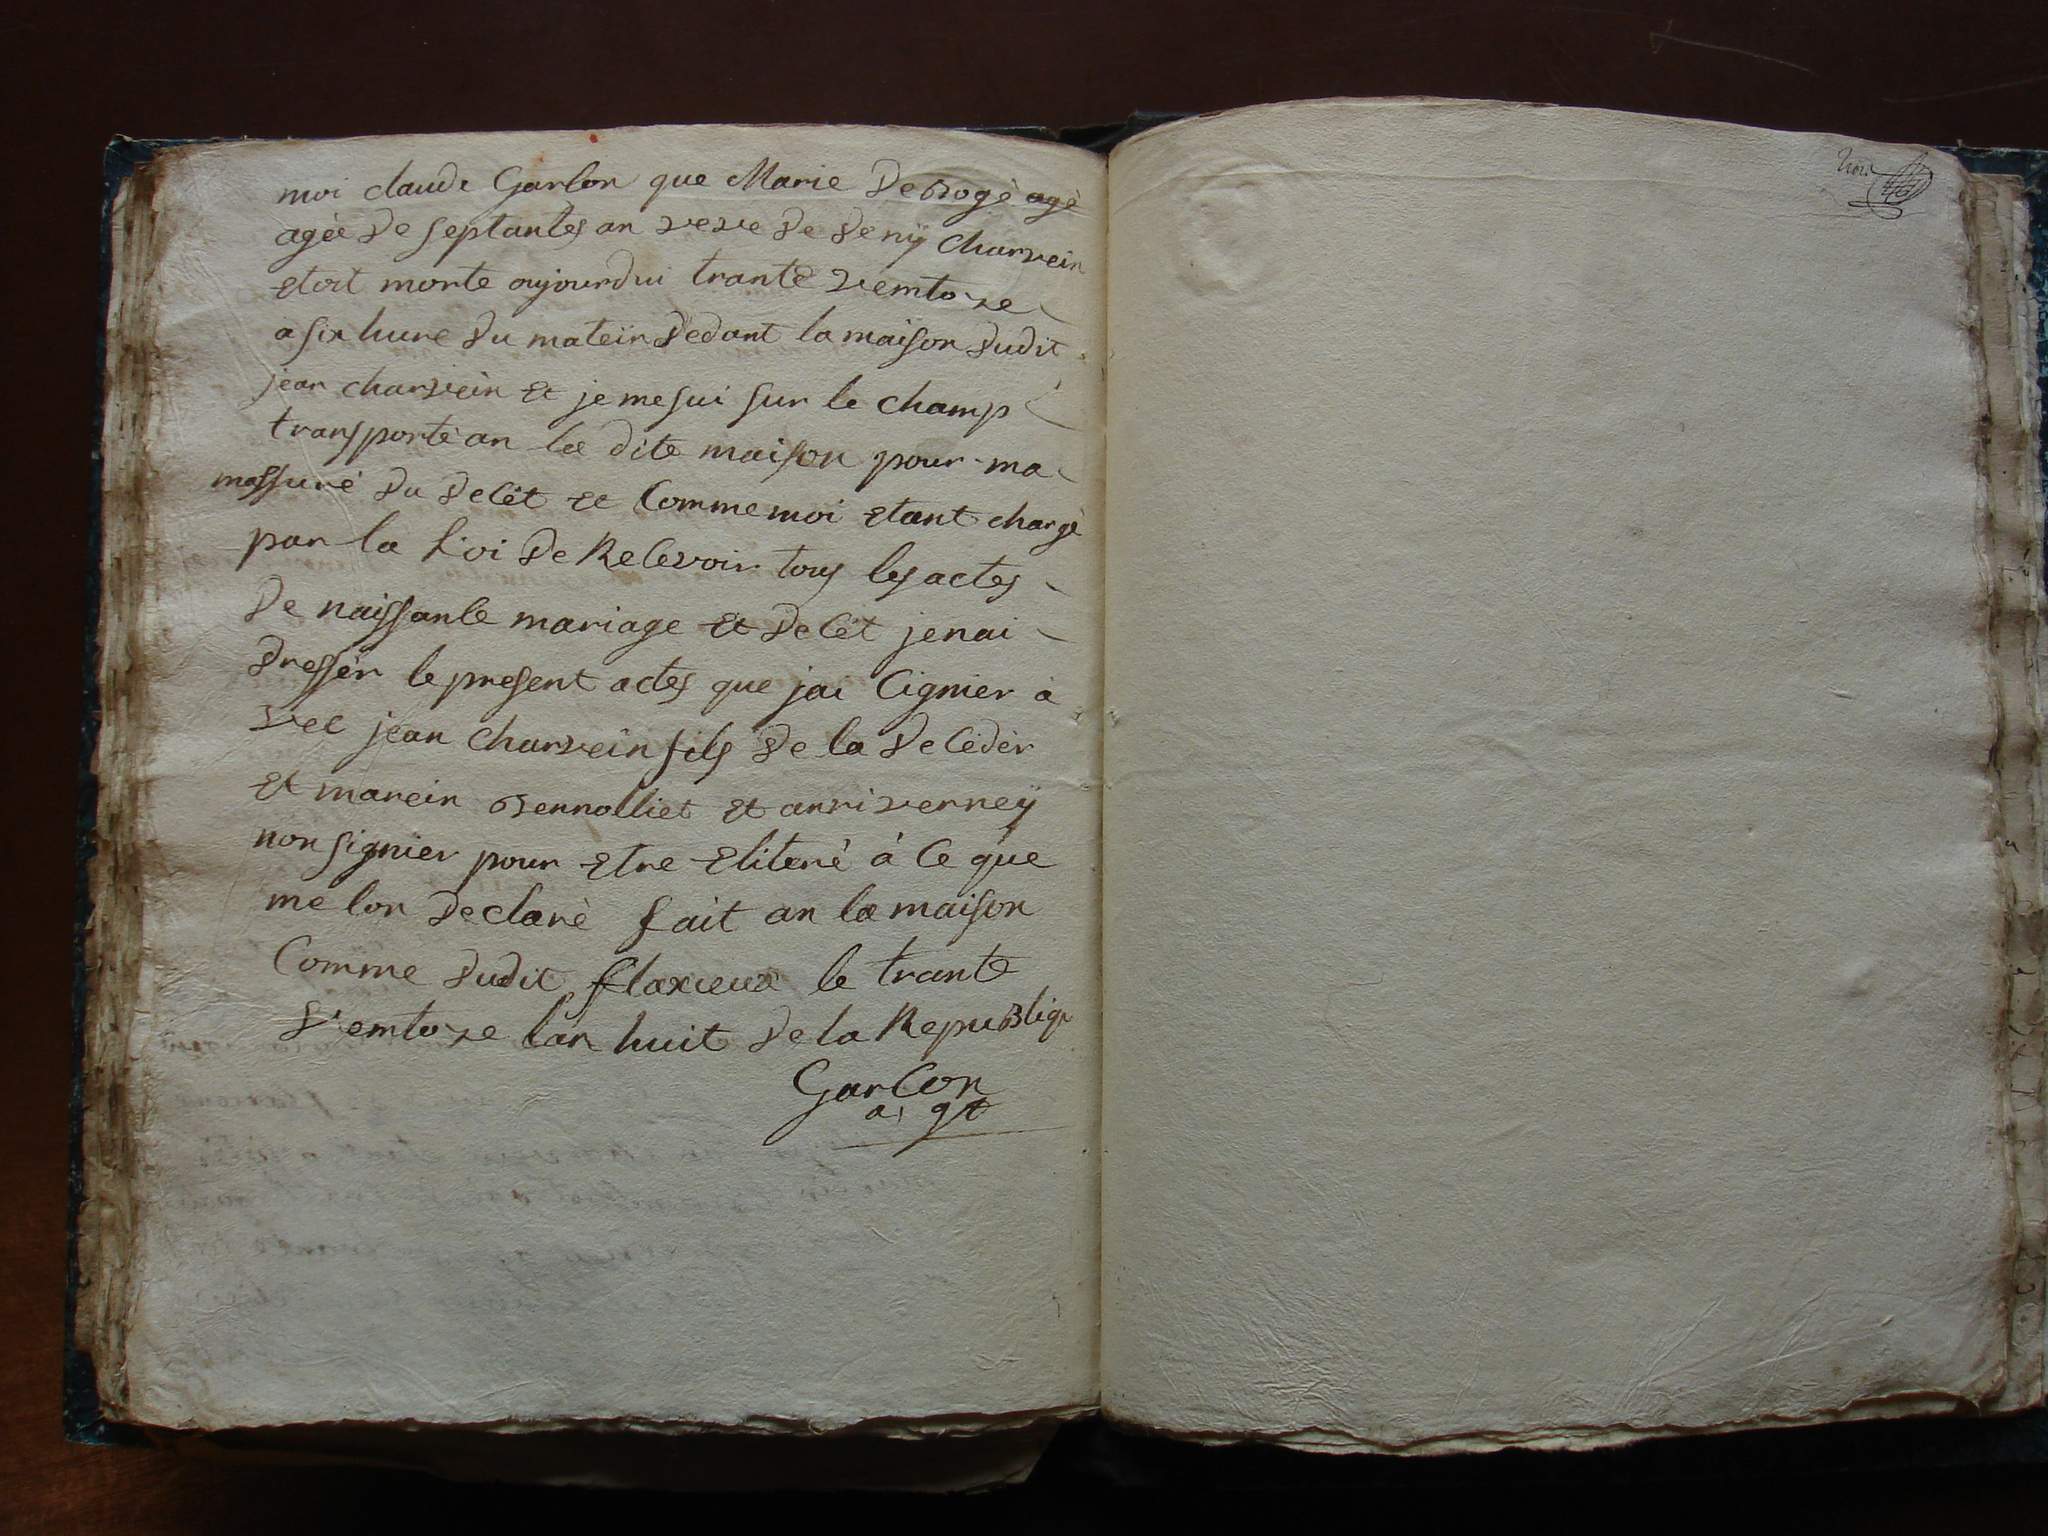 moi claude Garcon que Marie Debogè agè
agèe de septantes an veve de deny Charvein
etoit morte oujourdui trante vemtose
a six hure du matein dedant la maison dudit
jean charvein et je me sui sur le champ
transporté an la dite maison pour ma
massuré du decét et Comme moi etant chargè
par la Loi de Recevoir tous les actes
de naissance mariage et decét jenai
dressér le present actes que jai Cignier a
vec jean Charvein fils de la decédèr
et marein Bennolliet et anri verney
non signier pour etre eliterè à Ce que
me lon declarè fait an la maison
Comme dudit flaxieux le trante
Vemtose lan huit de la Republiqu
GarCon
a, gt